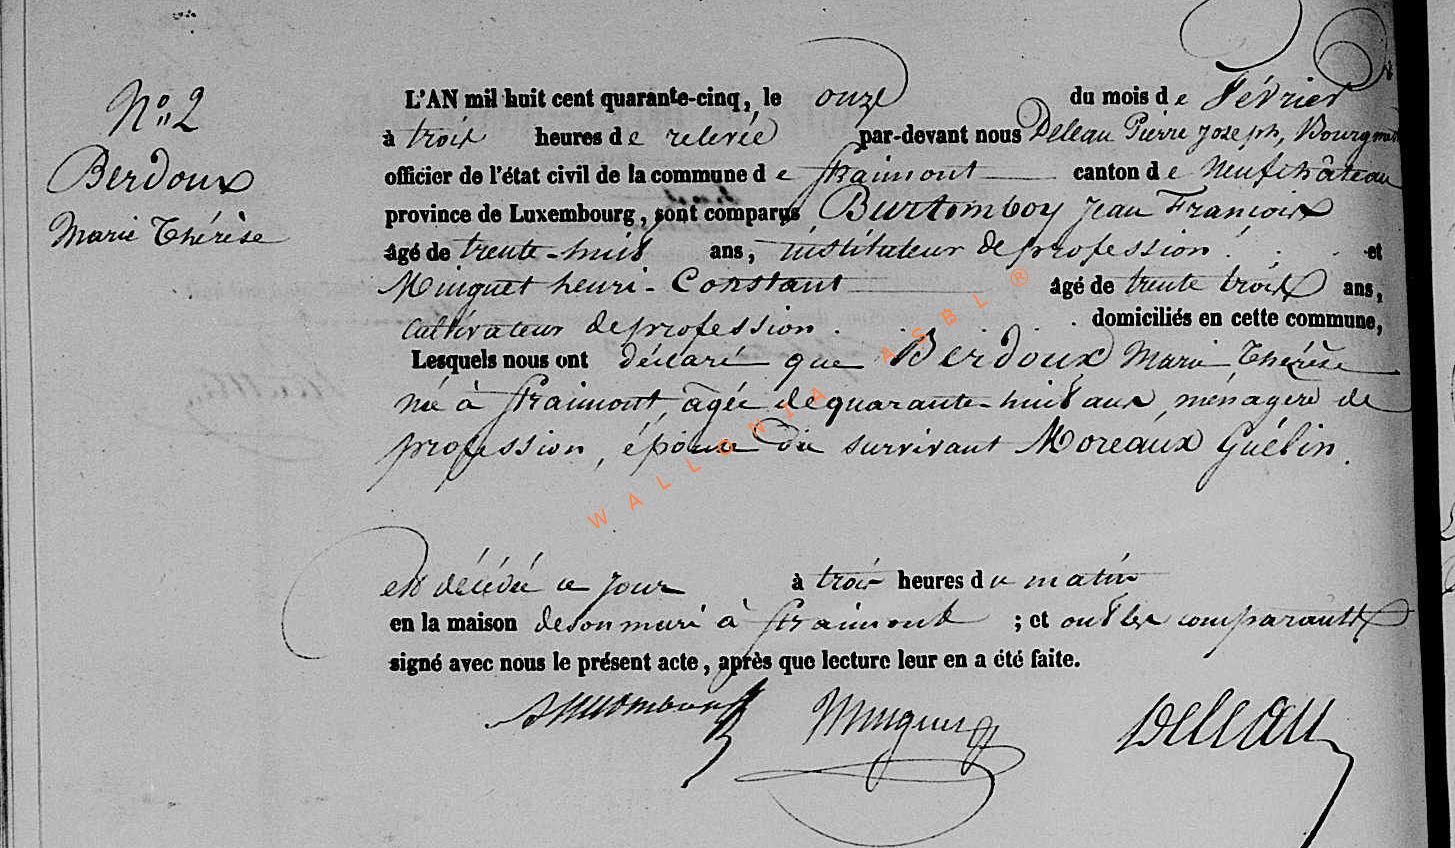 N° 2
Berdoux
Marie Thérèse
L'AN mil huit cent quarante-cinq, le onze du mois de Février
à trois heures de relevée par-devant nous Deleau Pierre Joseph, Bourgm
officier de l'état civil de la commune de Straimont canton de Neufchâteau
province de Luxembourg, sont comparus Burtomboy Jean François
âgé de trente-huit ans, instituteur de profession. et
Minguet henri-Constant âgé de trente trois ans,
cultivateur de profession. domiciliés en cette commune,
Lesquels nous ont déclaré que Berdoux Marie Thérèse
née à Straimont, agée de quarante-huit ans, ménagère de
profession, épouse du survivant Moreaux Guélin.
est décédée ce jour à trois heures du matin
en la maison de son mari à Straimont ; et ont les comparants
signé avec nous le présent acte, après que lecture leur en a été faite.
Minguet Deleau
WALLONIA ASBL ®